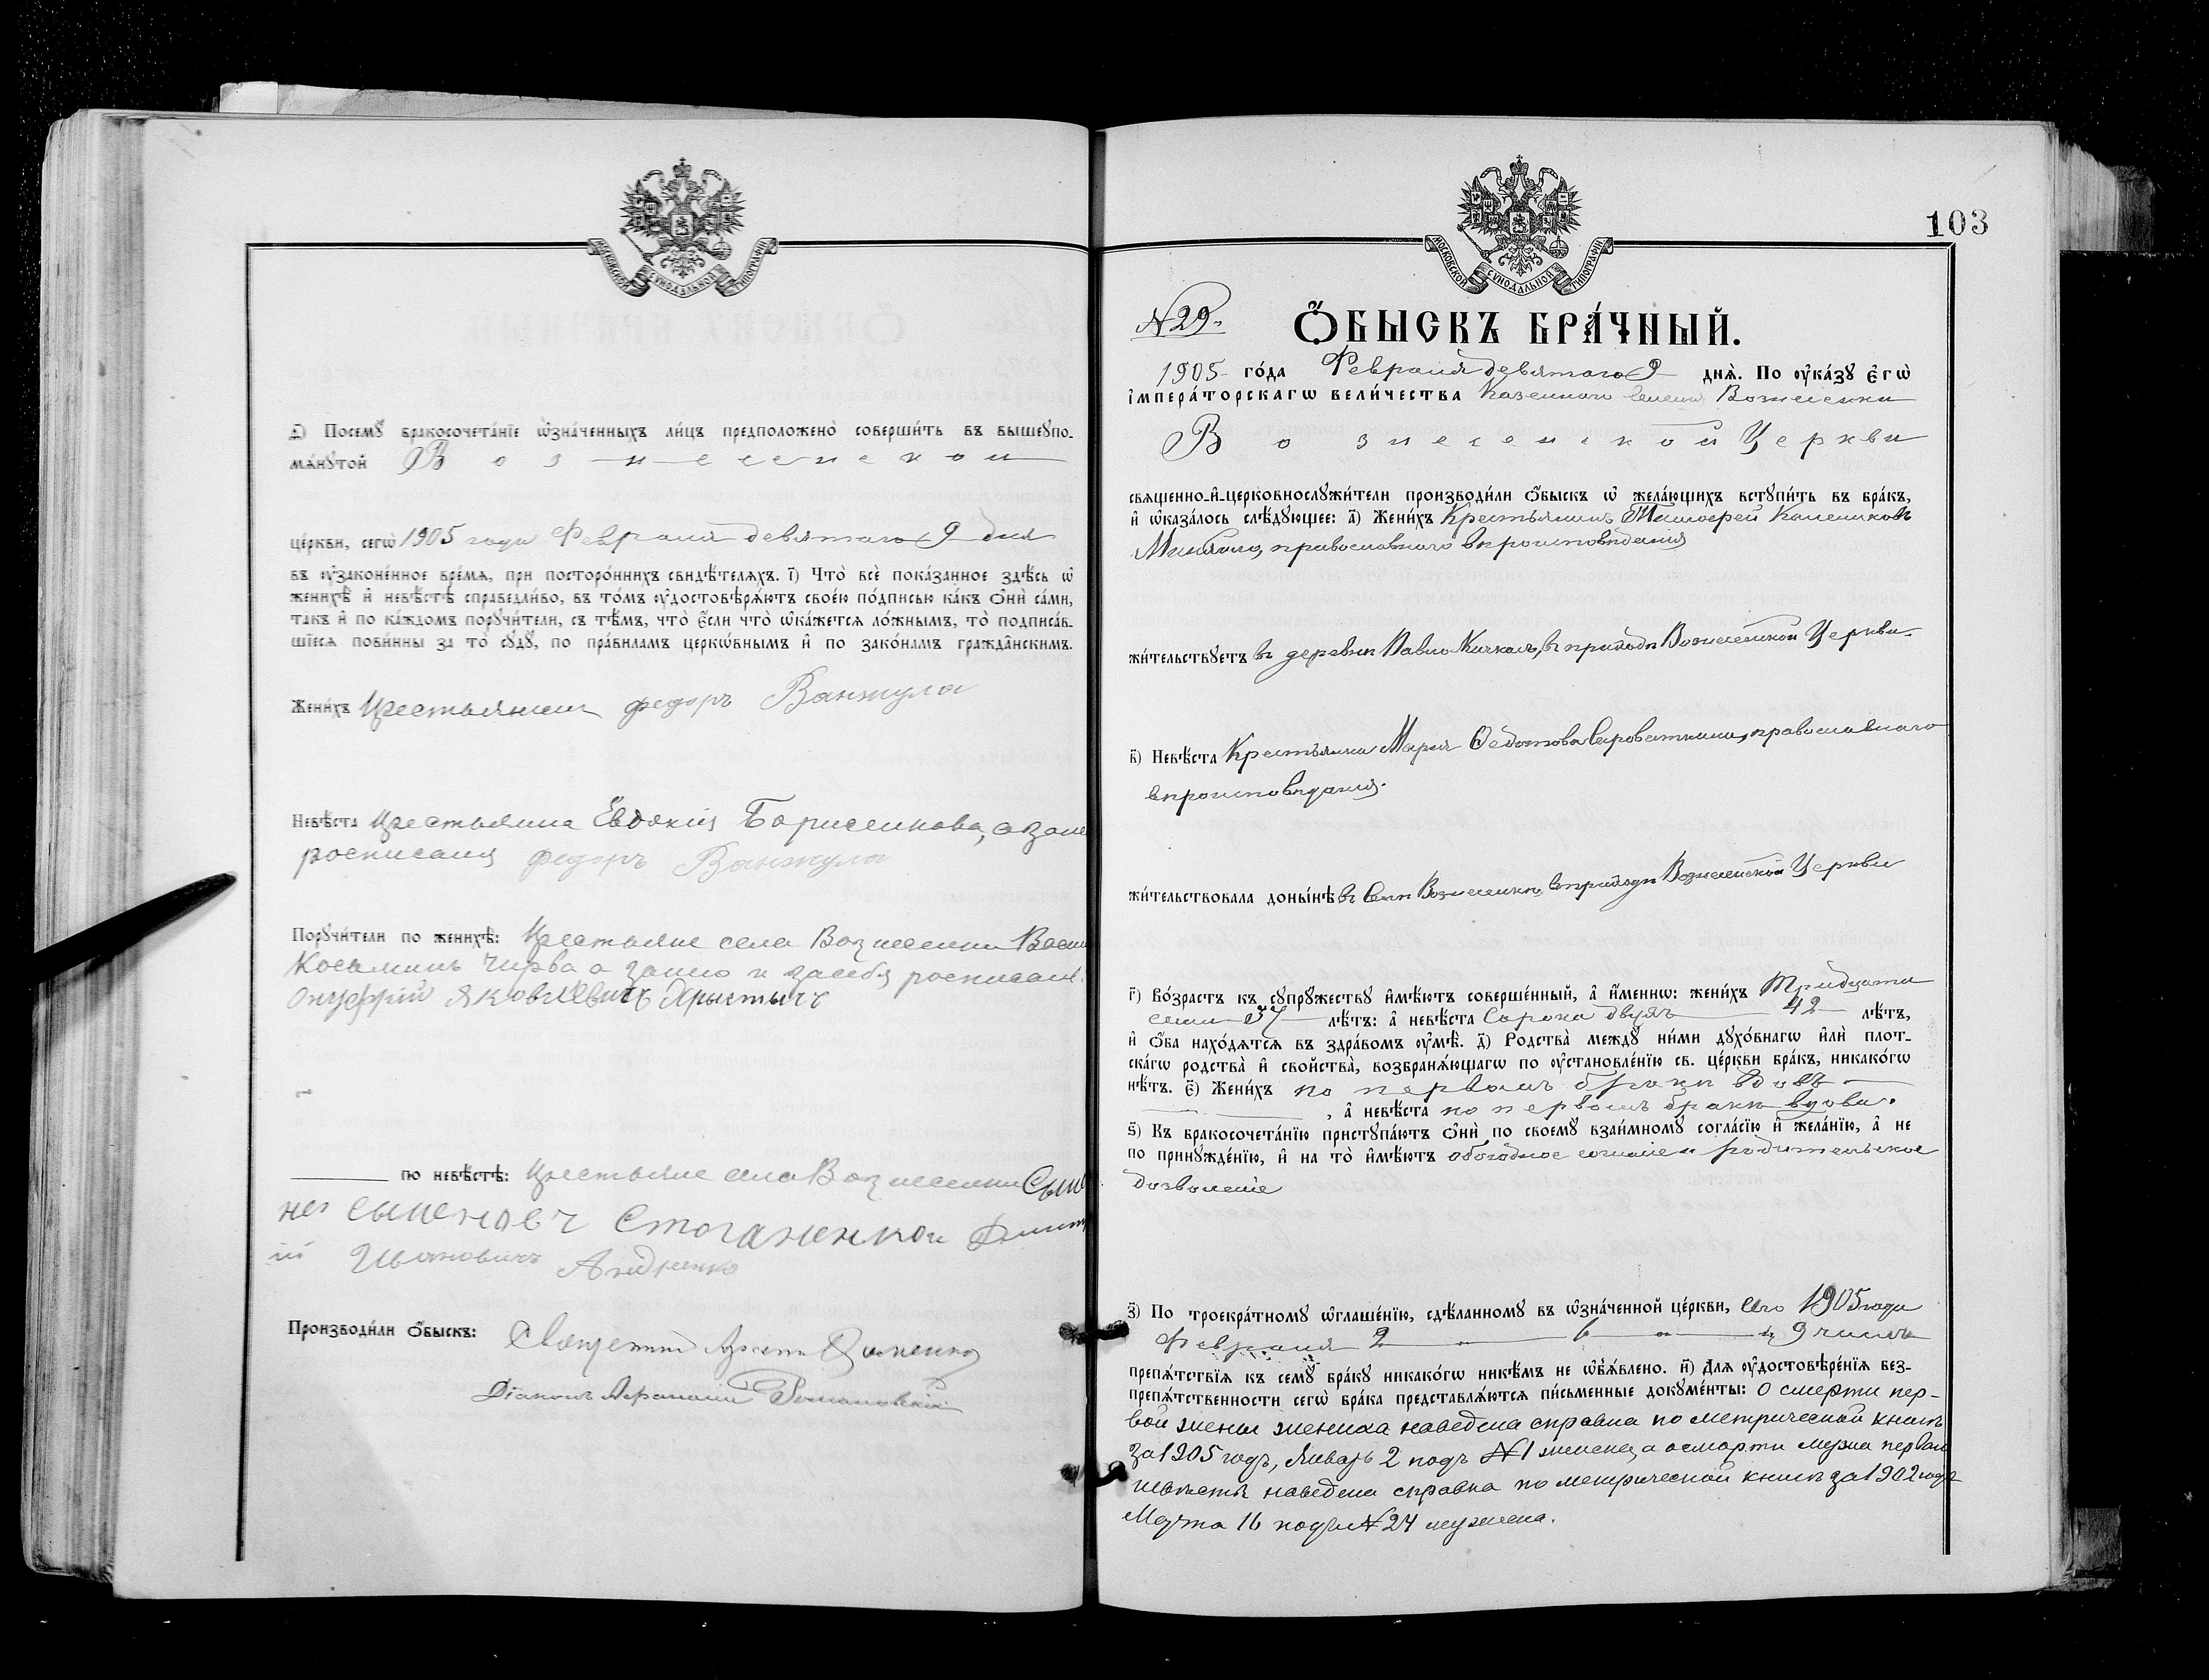 МОСКОВСКОЙ СѴНОДАЛЬНОЙ ТИПОГРАФІИ
ѳ҃) Посемꙋ̀ бракосочета́нїе ѡ҆зна́ченныхъ ли́цъ предположено̀ соверши́ть въ вышеꙋпо-
мѧ́нꙋтой Вознесенской
це́ркви, сегѡ̀ 1905 года Февраля девятаго 9 дня
въ ᲂу҆зако́ненное вре́мѧ, при посторо́ннихъ свидѣ́телѧхъ. і҃) Что̀ всѐ пока́занное здѣ́сь ѡ҆
женихѣ̀ и҆ невѣ́стѣ справедли́во, въ то́мъ ᲂу҆достовѣрѧ́ютъ свое́ю по́дписью ка́къ ѻ҆нѝ са́ми,
та́къ и҆ по ка́ждомъ порꙋчи́тели, съ тѣ́мъ, что̀ є҆́сли что̀ ѡ҆ка́жетсѧ ло́жнымъ, то̀ подписа́в-
шїесѧ пови́нны за то̀ сꙋдꙋ̀, по пра́виламъ церкѡ́внымъ и҆ по зако́намъ гражда́нскимъ.
Жени́хъ Крестьянинъ Федоръ Ванжула
Невѣ́ста крестьянка Евдокія Борисенкова, а за нее
росписался Федоръ Ванжула
Порꙋчи́тели по женихѣ̀: Крестьяне села Вознесенки
Чирва а за него и за себя росписался
Онуфрій Яковлевичъ Христичъ
по невѣ́стѣ: Крестьяне села Вознесенки
Стоганенко и
Ивановичъ Андрієнко
Производи́ли ѻ҆́быскъ: Священникъ
Діаконъ Романовскій
МОСКОВСКОЙ СѴНОДАЛЬНОЙ ТИПОГРАФІИ
103
№ 29.
Ѻ҆́БЫСКЪ БРА́ЧНЫЙ.
1905 го́да Февраля девятаго 9 днѧ̀. По ᲂу҆ка́зꙋ є҆гѡ̀
і҆мпера́торскагѡ вели́чества Казеннаго селенія Вознесенки
Вознесенской Церкви
свѧще́нно-и҆-церковнослꙋжи́тели производи́ли ѻ҆́быскъ ѡ҆ жела́ющихъ встꙋпи́ть въ бра́къ,
и҆ ѡ҆каза́лось слѣ́дꙋющее: а҃) Жени́хъ Крестьянинъ Тимофей
православнаго вѣроисповѣданія
жи́тельствꙋетъ въ деревнѣ Павло-Кичкасъ, въ приходѣ Вознесенской Церкви
в҃) Невѣ́ста Крестьянка Марія Федотова Сыроваткина, православнаго
вѣроисповѣданія.
жи́тельствовала доны́нѣ въ Селѣ Вознесенкѣ, въ приходѣ Вознесенской Церкви
г҃) Во́зрастъ къ сꙋпрꙋ́жествꙋ и҆мѣ́ютъ соверше́нный, а҆ и҆́меннѡ: жени́хъ Тридцати
семи 37 лѣ́тъ: а҆ невѣ́ста Сорока двухъ 42 лѣ́тъ,
и҆ ѻ҆́ба нахо́дѧтсѧ въ здра́вомъ ᲂу҆мѣ̀. д҃) Родства̀ междꙋ̀ ни́ми дꙋхо́внагѡ и҆лѝ пло́т-
скагѡ родства̀ и҆ сво́йства, возбранѧ́ющагѡ по ᲂу҆становле́нїю св. це́ркви бра́къ, никако́гѡ
нѣ́тъ. є҃) Жени́хъ по первомъ бракѣ вдовъ
, а҆ невѣ́ста по первомъ бракѣ вдова.
ѕ҃) Къ бракосочета́нїю пристꙋпа́ютъ ѻ҆нѝ по своемꙋ̀ взаи́мномꙋ согла́сїю и҆ жела́нїю, а҆ не
по принꙋжде́нїю, и҆ на то̀ и҆мѣ́ютъ обоюдное согласіе и родительское
дозволеніе
з҃) По троекра́тномꙋ ѡ҆глаше́нїю, сдѣ́ланномꙋ въ ѡ҆зна́ченной це́ркви, сего 1905 года
Февраля 2 " 6 " и 9 числъ
препѧ́тствїѧ къ семꙋ̀ бра́кꙋ никако́гѡ никѣ́мъ не ѡ҆б̾ѧ́влено. и҃) Длѧ ᲂу҆достовѣре́нїѧ без-
препѧ́тственности сегѡ̀ бра́ка представлѧ́ютсѧ пи́сьменные докꙋме́нты: О смерти пер-
вой жены жениха наведена справка по метрической книгѣ
за 1905 годъ, Январь 2 подъ № 1 женска, а о смерти мужа первой
невѣсты наведена справка по метрической книгѣ за 1902 годъ
Марта 16 подъ № 24 мужска.